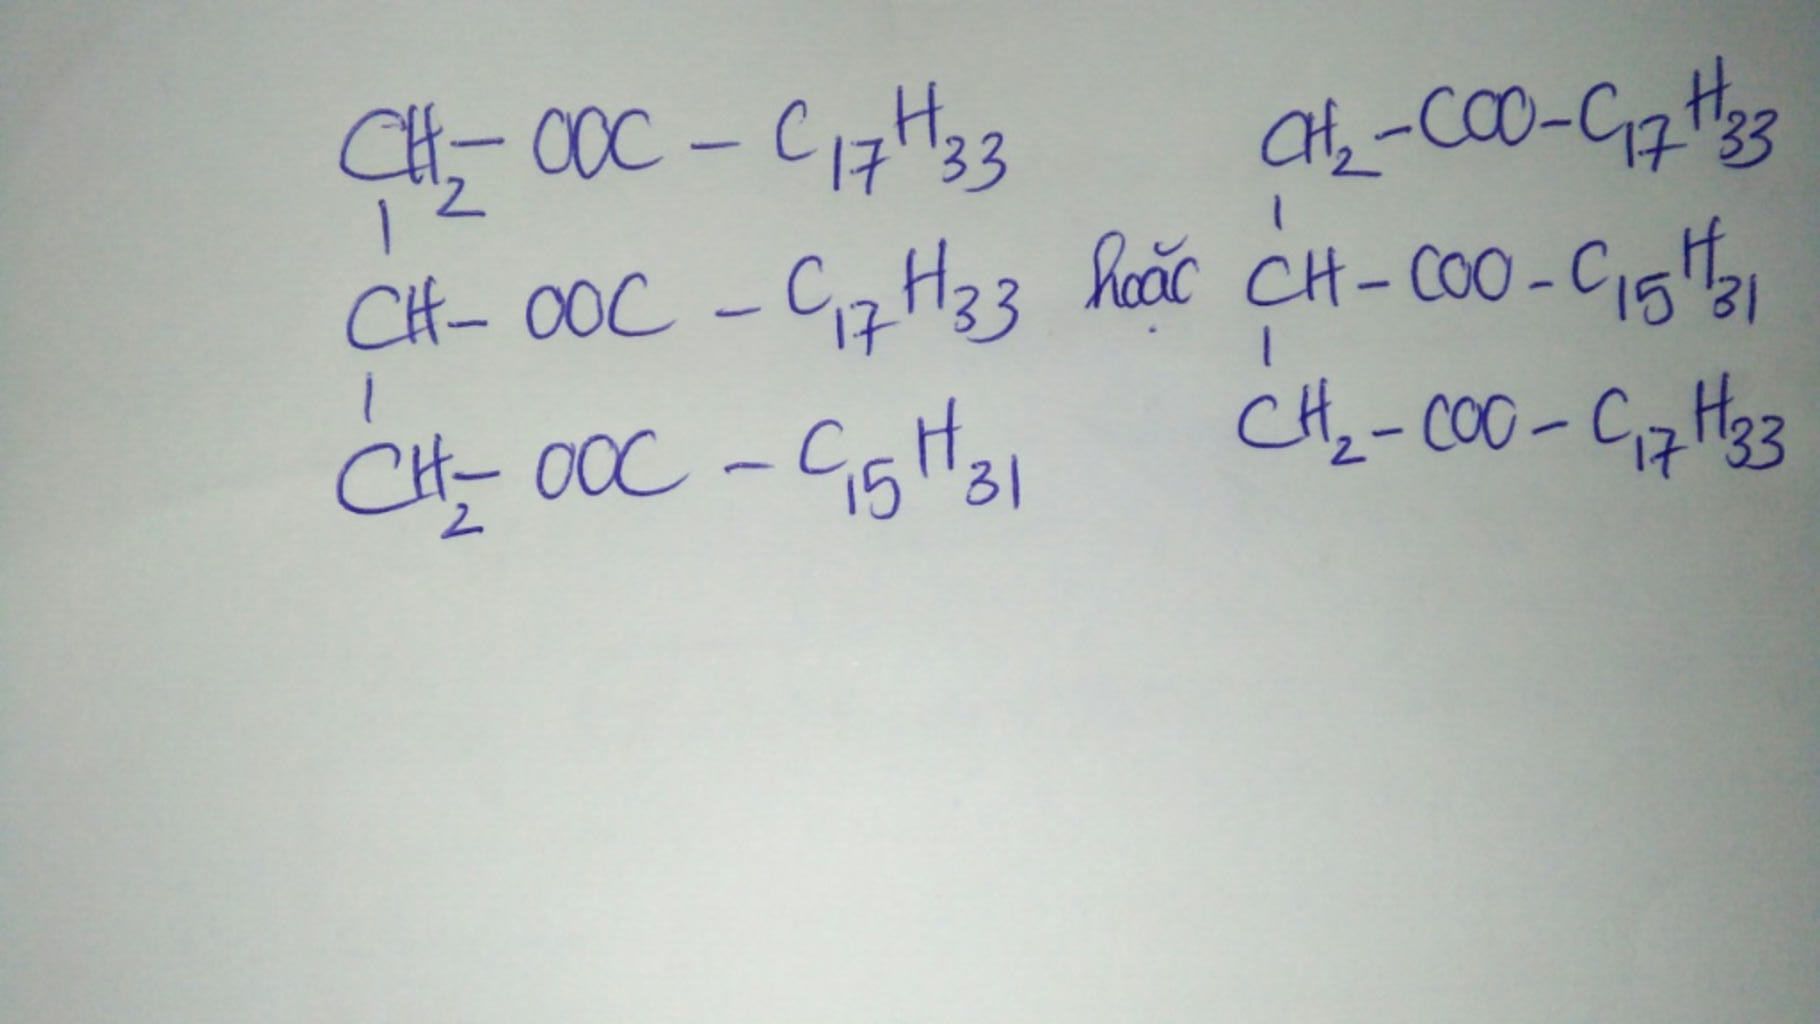 CH₂ – OOC – C₁₇H₃₃ CH₂ – COO – C₁₇H₃₃
|
|
CH – OOC – C₁₇H₃₃ hoặc CH – COO – C₁₅H₃₁
|
|
CH₂ – OOC – C₁₅H₃₁ CH₂ – COO – C₁₇H₃₃